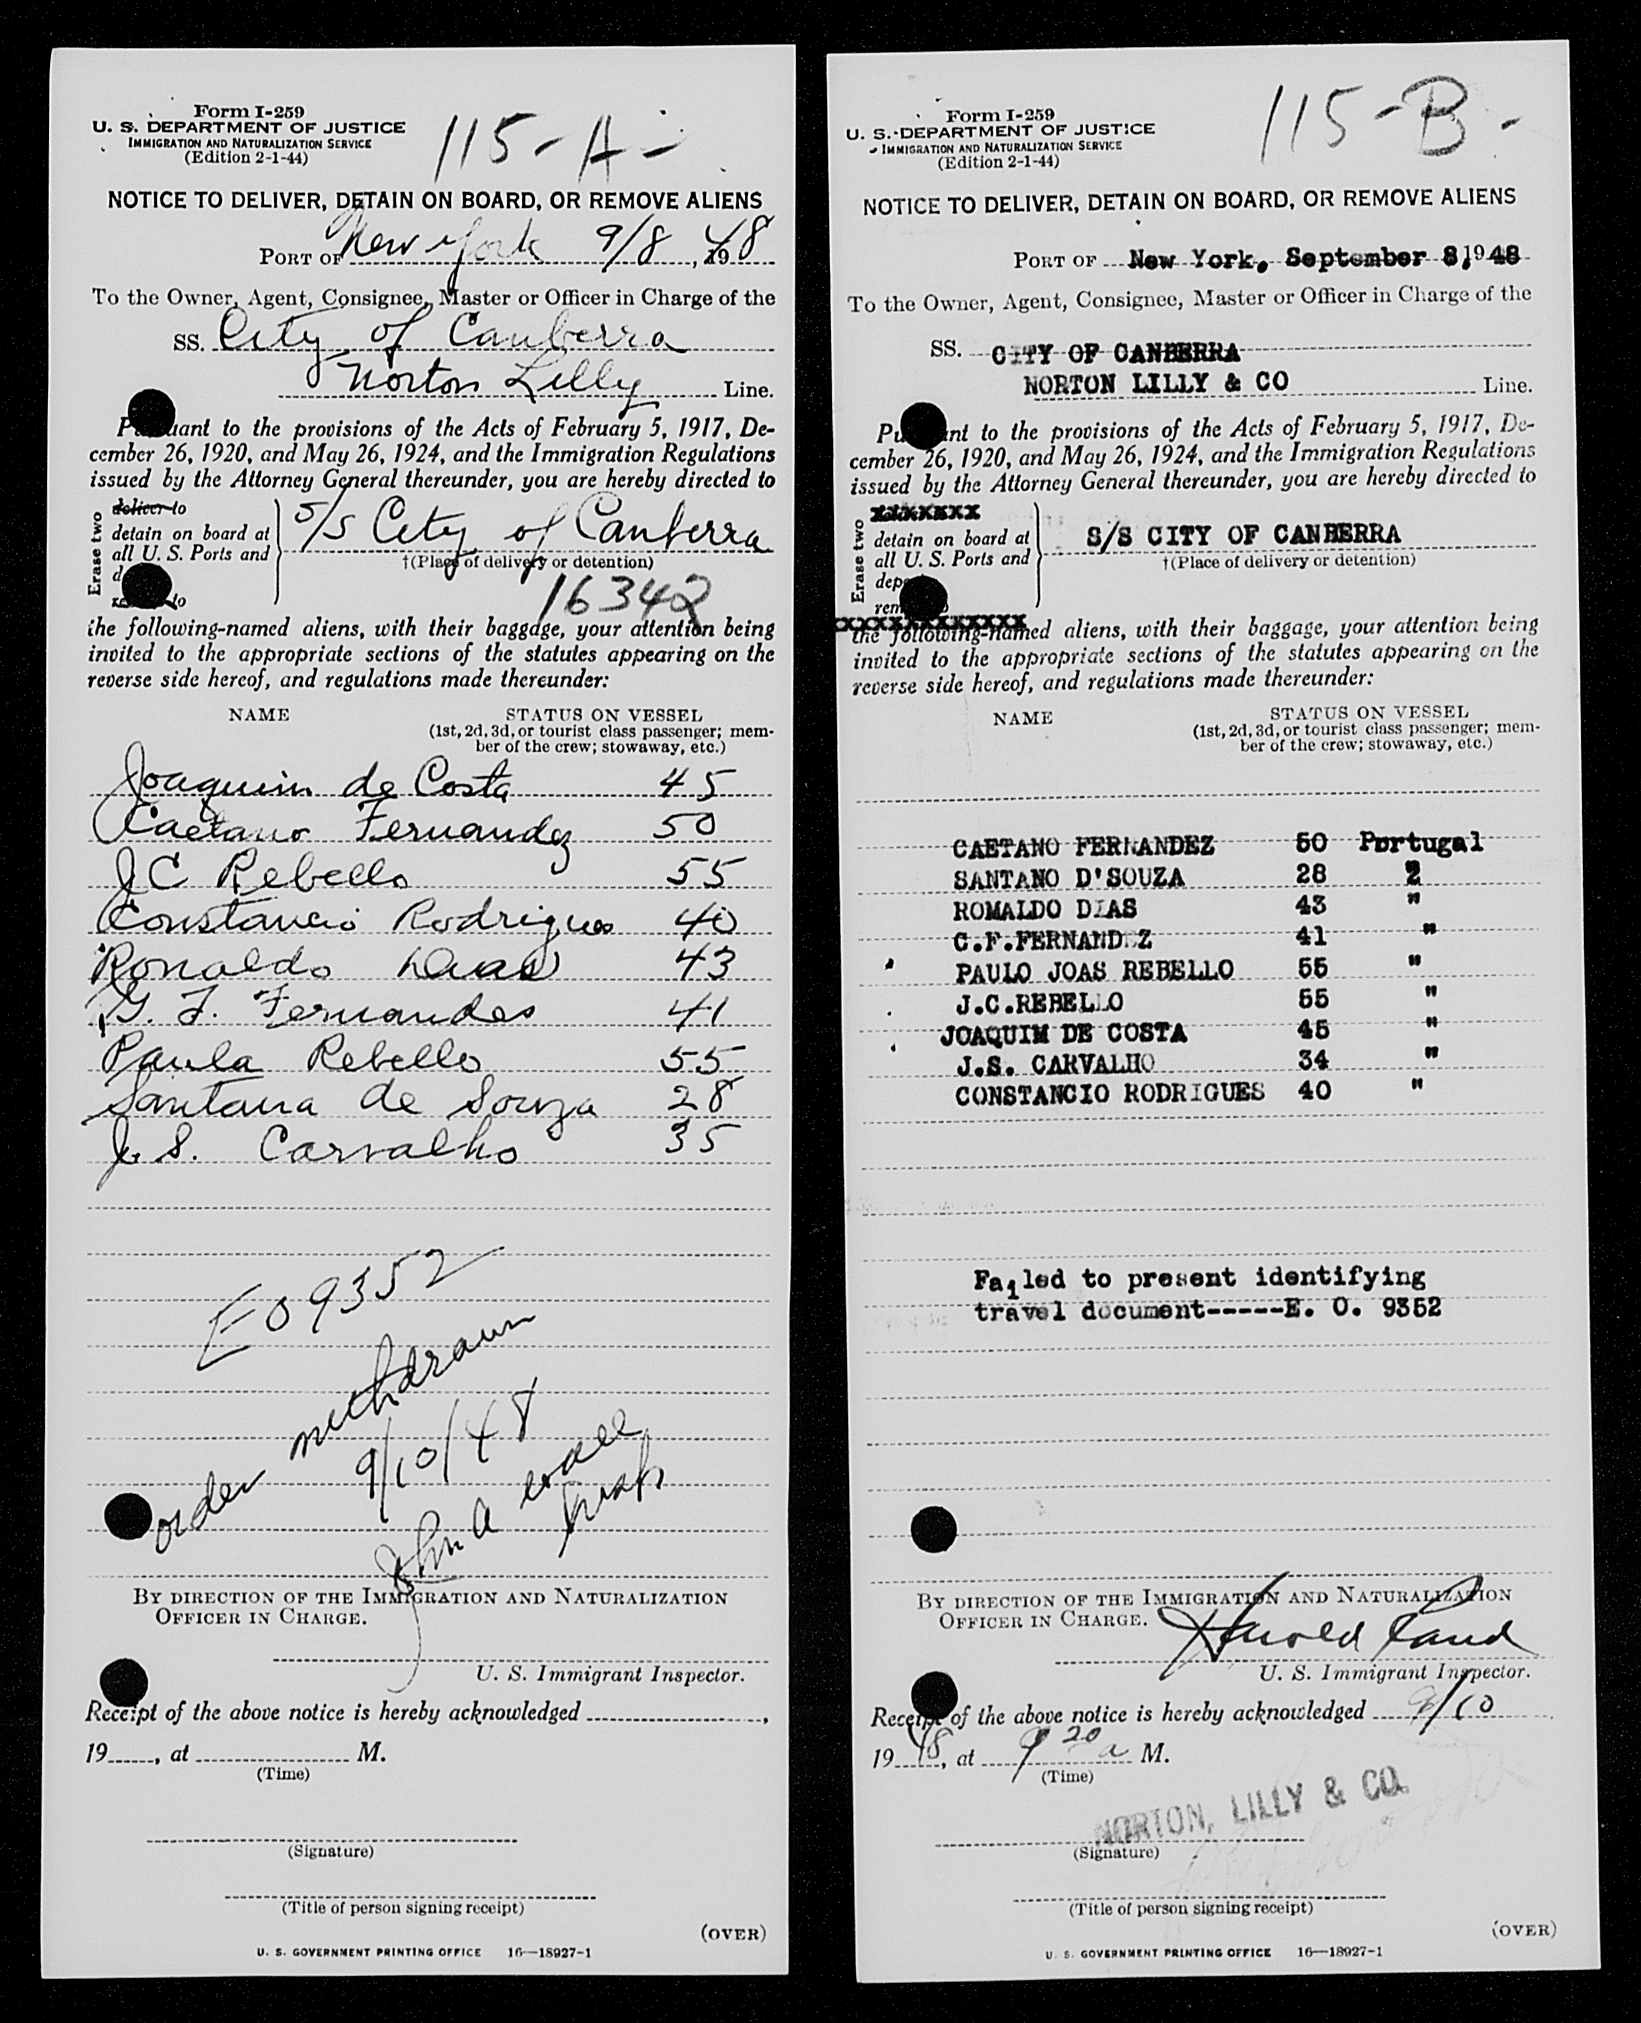 Form I-259
U. S. DEPARTMENT OF JUSTICE
IMMIGRATION AND NATURALIZATION SERVICE
(Edition 2-1-44)
115-A-
NOTICE TO DELIVER, DETAIN ON BOARD, OR REMOVE ALIENS
PORT OF New York 9/8, 1948
To the Owner, Agent, Consignee, Master or Officer in Charge of the
SS. City of Canberra
Norton Lilly Line.
Pursuant to the provisions of the Acts of February 5, 1917, De-
cember 26, 1920, and May 26, 1924, and the Immigration Regulations
issued by the Attorney General thereunder, you are hereby directed to
Erase two
deliver to
detain on board at
all U. S. Ports and
S/S City of Canberra
†(Place of delivery or detention)
to
16342
the following-named aliens, with their baggage, your attention being
invited to the appropriate sections of the statutes appearing on the
reverse side hereof, and regulations made thereunder:
NAME STATUS ON VESSEL
(1st, 2d, 3d, or tourist class passenger; mem-
ber of the crew; stowaway, etc.)
Joaquim de Costa 45
Caetano Fernandez 50
J C Rebello 55
Constancio Rodrigues 40
Ronaldo Dias 43
G. F. Fernandes 41
Paula Rebello 55
Santana de Souza 28
J. S. Carvalho 35
EO 9352
order withdrawn
9/10/48
John A
BY DIRECTION OF THE IMMIGRATION AND NATURALIZATION
OFFICER IN CHARGE.
U. S. Immigrant Inspector.
Receipt of the above notice is hereby acknowledged ,
19 , at M.
(Time)
(Signature)
(Title of person signing receipt)
(OVER)
U. S. GOVERNMENT PRINTING OFFICE 16—18927-1
Form I-259
U. S. DEPARTMENT OF JUSTICE
IMMIGRATION AND NATURALIZATION SERVICE
(Edition 2-1-44)
115-B-
NOTICE TO DELIVER, DETAIN ON BOARD, OR REMOVE ALIENS
PORT OF New York, September 8, 1948
To the Owner, Agent, Consignee, Master or Officer in Charge of the
SS. CITY OF CANBERRA
NORTON LILLY & CO Line.
Pursuant to the provisions of the Acts of February 5, 1917, De-
cember 26, 1920, and May 26, 1924, and the Immigration Regulations
issued by the Attorney General thereunder, you are hereby directed to
Erase two
xxxxxxx
detain on board at
all U. S. Ports and
S/S CITY OF CANBERRA
†(Place of delivery or detention)
the following-named aliens, with their baggage, your attention being
invited to the appropriate sections of the statutes appearing on the
reverse side hereof, and regulations made thereunder:
NAME STATUS ON VESSEL
(1st, 2d, 3d, or tourist class passenger; mem-
ber of the crew; stowaway, etc.)
CAETANO FERNANDEZ 50 Portugal
SANTANO D'SOUZA 28 2
ROMALDO DIAS 43 "
C.F.FERNANDEZ 41 "
PAULO JOAS REBELLO 55 "
J.C.REBELLO 55 "
JOAQUIM DE COSTA 45 "
J.S. CARVALHO 34 "
CONSTANCIO RODRIGUES 40 "
Failed to present identifying
travel document-----E. O. 9352
BY DIRECTION OF THE IMMIGRATION AND NATURALIZATION
OFFICER IN CHARGE.
Harold Rand
U. S. Immigrant Inspector.
Receipt of the above notice is hereby acknowledged 9/10
1948, at 9 20 a M.
(Time)
NORTON, LILLY & CO.
(Signature)
(Title of person signing receipt)
(OVER)
U. S. GOVERNMENT PRINTING OFFICE 16—18927-1